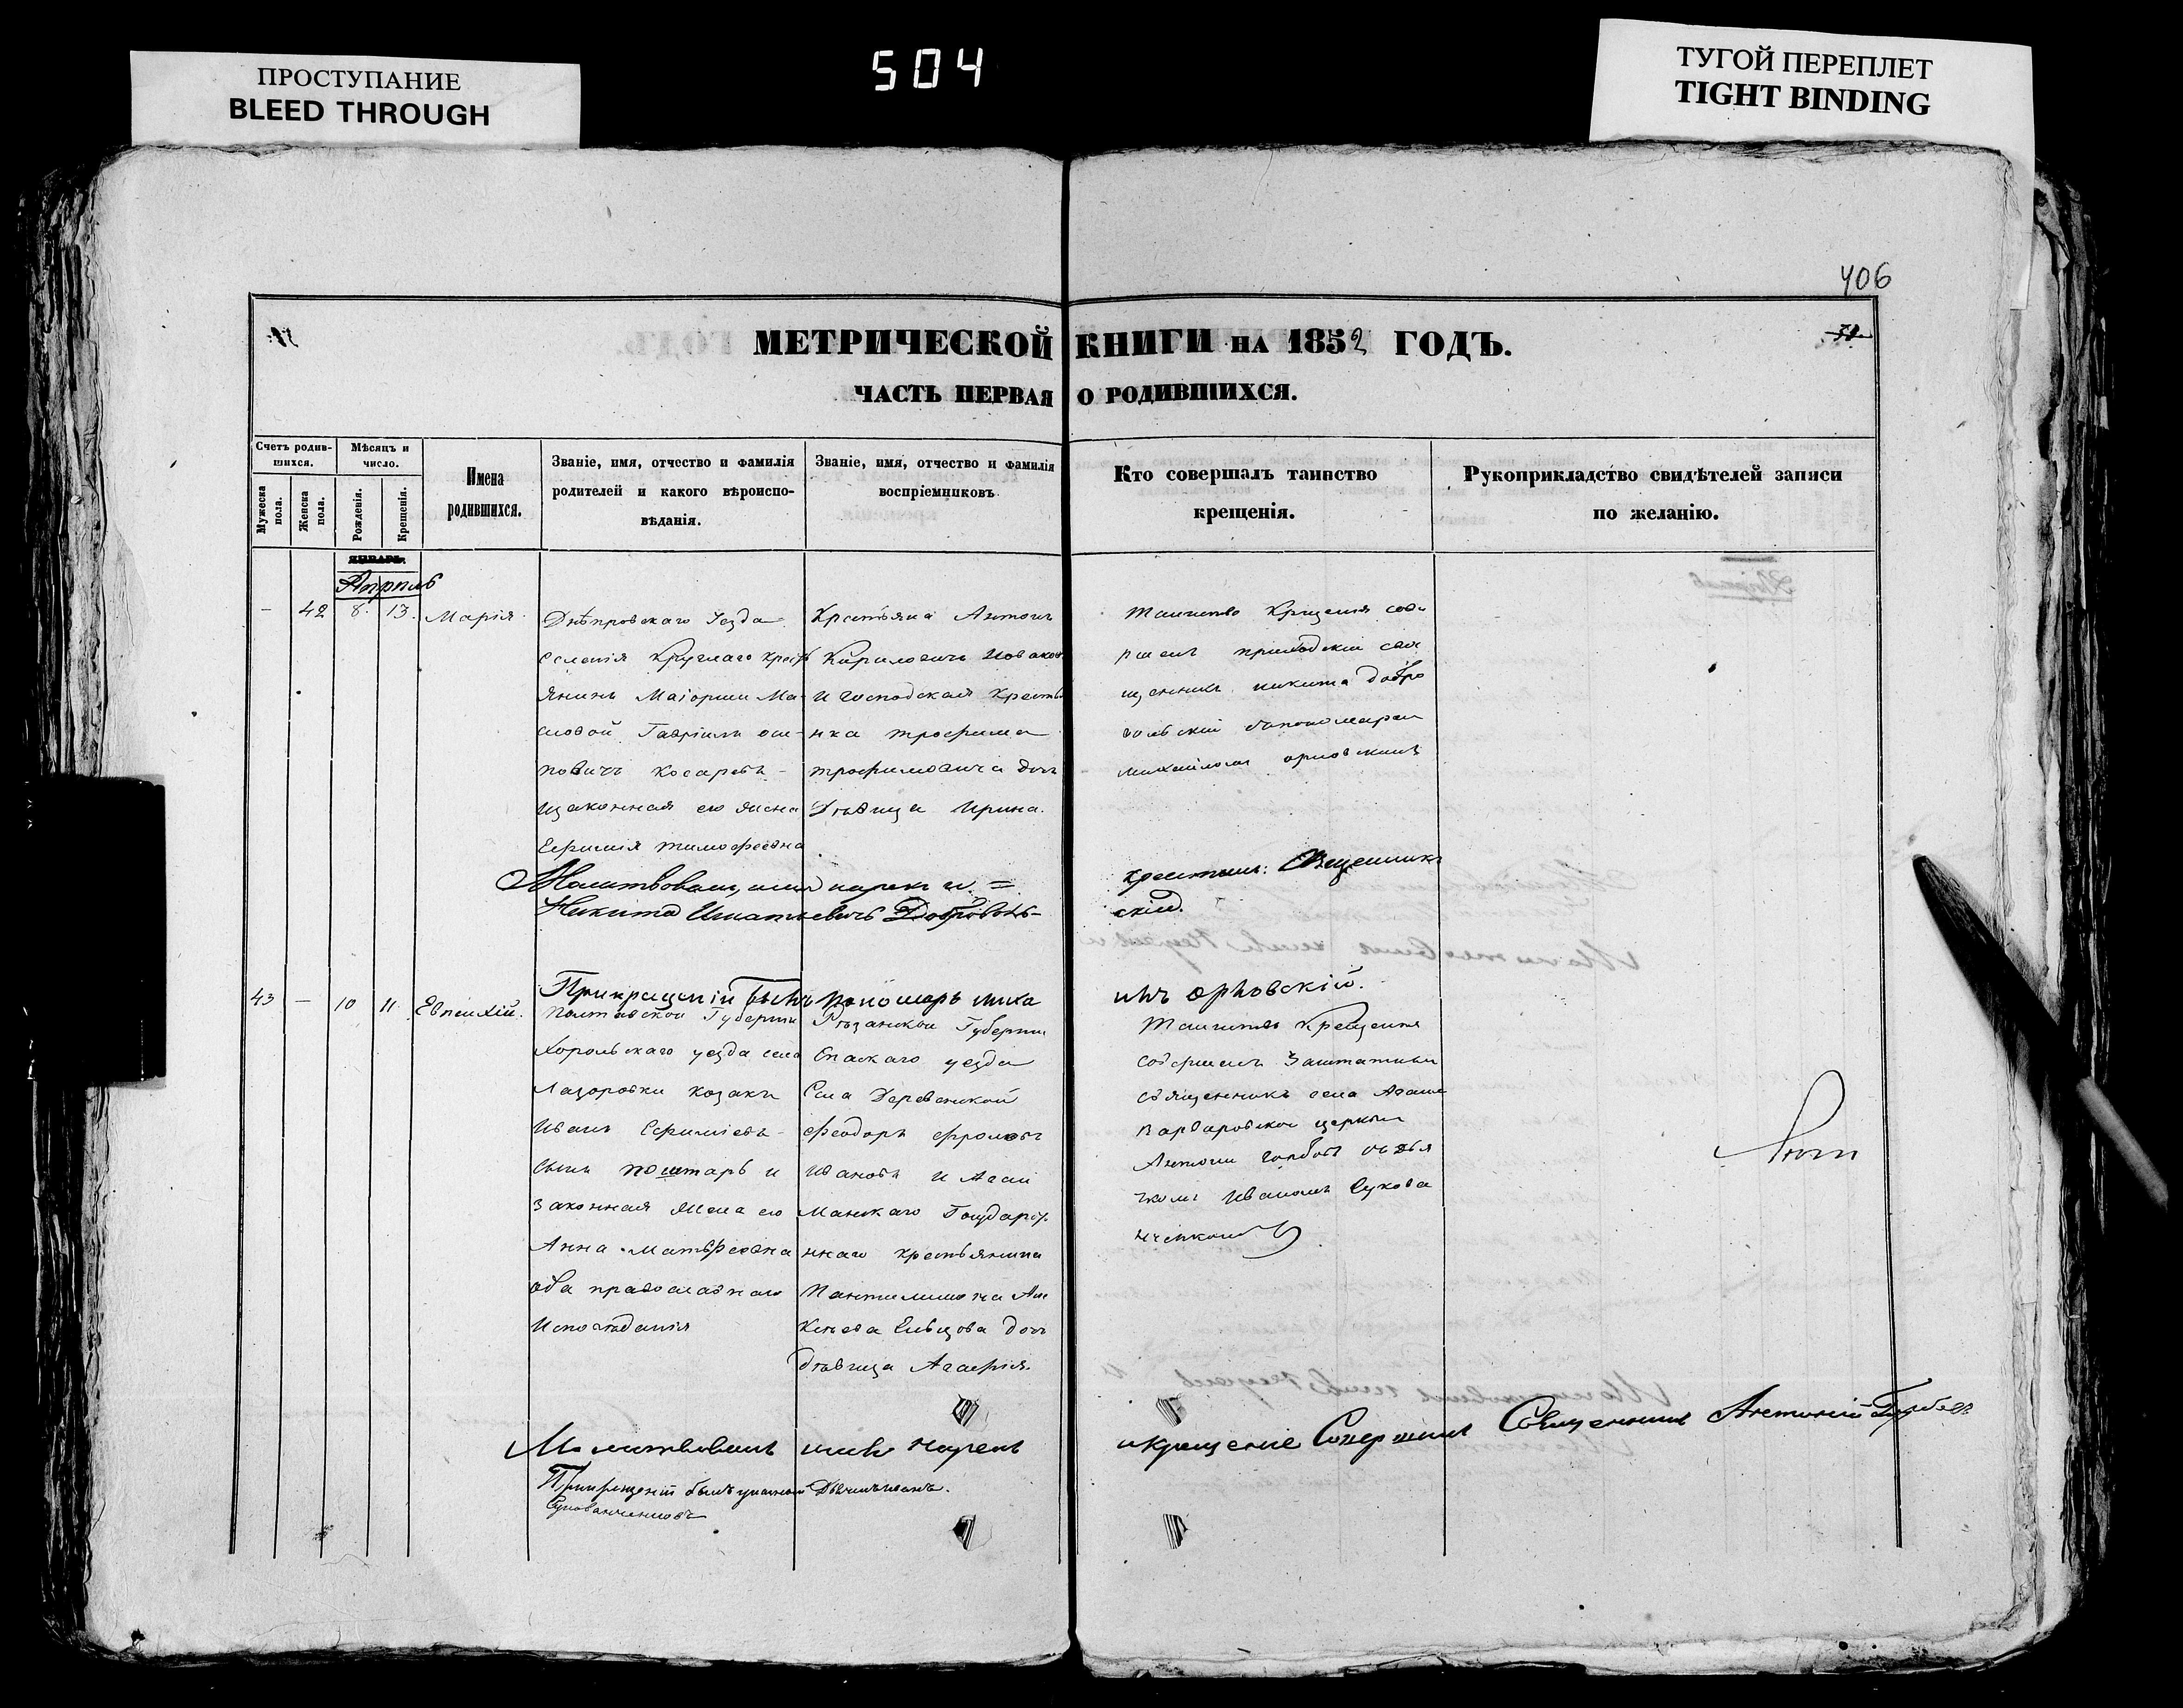 ПРОСТУПАНИЕ
BLEED THROUGH
504
ТУГОЙ ПЕРЕПЛЕТ
TIGHT BINDING
406
МЕТРИЧЕСКОЙ КНИГИ НА 1852 ГОДЪ.
ЧАСТЬ ПЕРВАЯ О РОДИВШИХСЯ.
Счетъ родив-
шихся.
Мужеска
пола.
Женска
пола.
Мѣсяцъ и
число.
Рожденія.
Крещенія.
Имена
родившихся.
Званіе, имя, отчество и фамилія
родителей и какого вѣроиспо-
вѣданія.
Званіе, имя, отчество и фамилія
воспріемниковъ
Кто совершалъ таинство
крещенія.
Рукоприкладство свидѣтелей записи
по желанію.
ЯНВАРЬ.
Апрѣль
– 42 8. 13. Марія
Днѣпровскаго Уезда
Селенія Круглаго крестъ
янинъ Маіорши Ма-
словой Гавріилъ оси-
повичъ Косаревъ –
изаконная его жена
Ефимія тимофеевна
Крестьяна Антонъ
Кириловичъ Новаков
и Господская Кресть
нка трофима
трофимовича дочь
Дѣвица Ирина.
Таинство Крещенія сове
ршилъ приходскій свя
щенникъ никита добро
вольскій спономарем
михаиломъ орловскимъ
Молитвовалъ, имя нарекъ и =
крестилъ: Священникъ
Никита Игнатьевичъ Доброволь-
скій.
Прикрещеніи былъ пономарь миха
илъ орловскій.
43 – 10 11 Евпсихій.
Полтавской Губерніи
Хорольскаго уезда села
Лазорѣвки козакъ
Иванъ Ефиміевъ –
сынъ поштарь и
законная жена его
Анна Матвѣеевна
оба православнаго
Исповѣданія
Рязанской Губерніи
Спаскаго уезда
Села Деревенской
Феодоръ Фроловъ
Ивановъ и Агай
манскаго Государст
ннаго крестьянина
Пантилимона Але
ксѣева Ельцова дочь
дѣвица Агафія.
Таинство Крещенія
совершилъ Заштатный
священникъ села Агаим
варваровской церкви
Антоній горбовъ сдья
чкомъ Иваномъ Сукова
нченкомъ
Молитвовалъ имя нарекъ
и крещеніе Совершилъ Священникъ Антоній Горбовъ
Прикрещеніи былъ Дьячекъ Иванъ